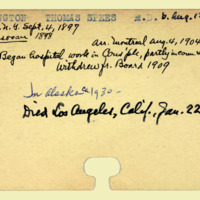 GSTON- THOMAS SPEES M.D. b. Aug. 1
n. y. Sept. 4, 1897
1898
arr. Montreal Aug. 4, 1904
Began hospital work in Cons'ple, partly in
Withdrew fr. Board 1909
In Alaska 1930-
Died Los Angeles, Calif., Jan. 22